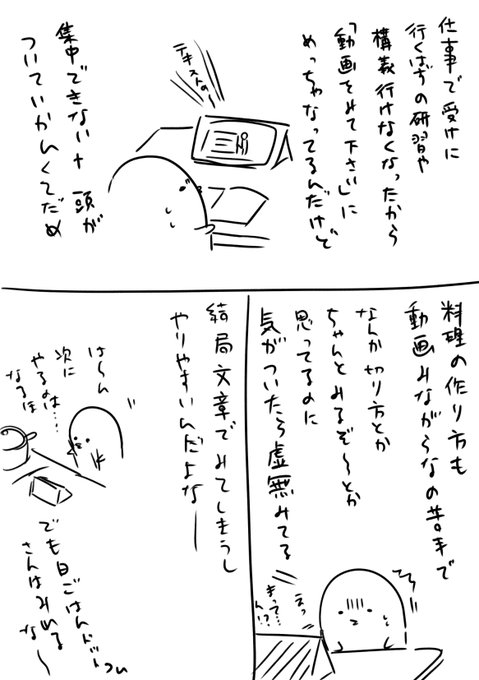 仕事で受けに
行くはずの研習や
構義行けなくなったから
「動画をみて下さい」に
めっちゃなってるんだけど
テキストの
集中できない+頭が
ついていかんくてだめ
料理の作り方も
動画みながらなの苦手で
なんか切り方とか
ちゃんとみるぞ〜とか
思ってるのに
気がついたら虚無みてる
えっ
まって…
ん!?
結局文章でみてしまうし
やりやすいんだよなー
は〜ん
次に
やるのは…
なるほ
でも日ごはんドットコム
さんはみれる
な〜